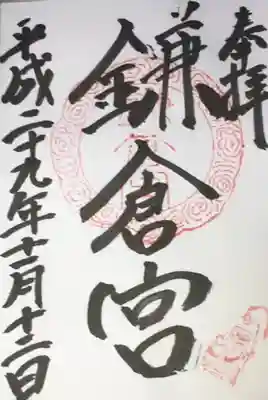 奉拝
鎌倉宮
平成二十九年十二月十二日